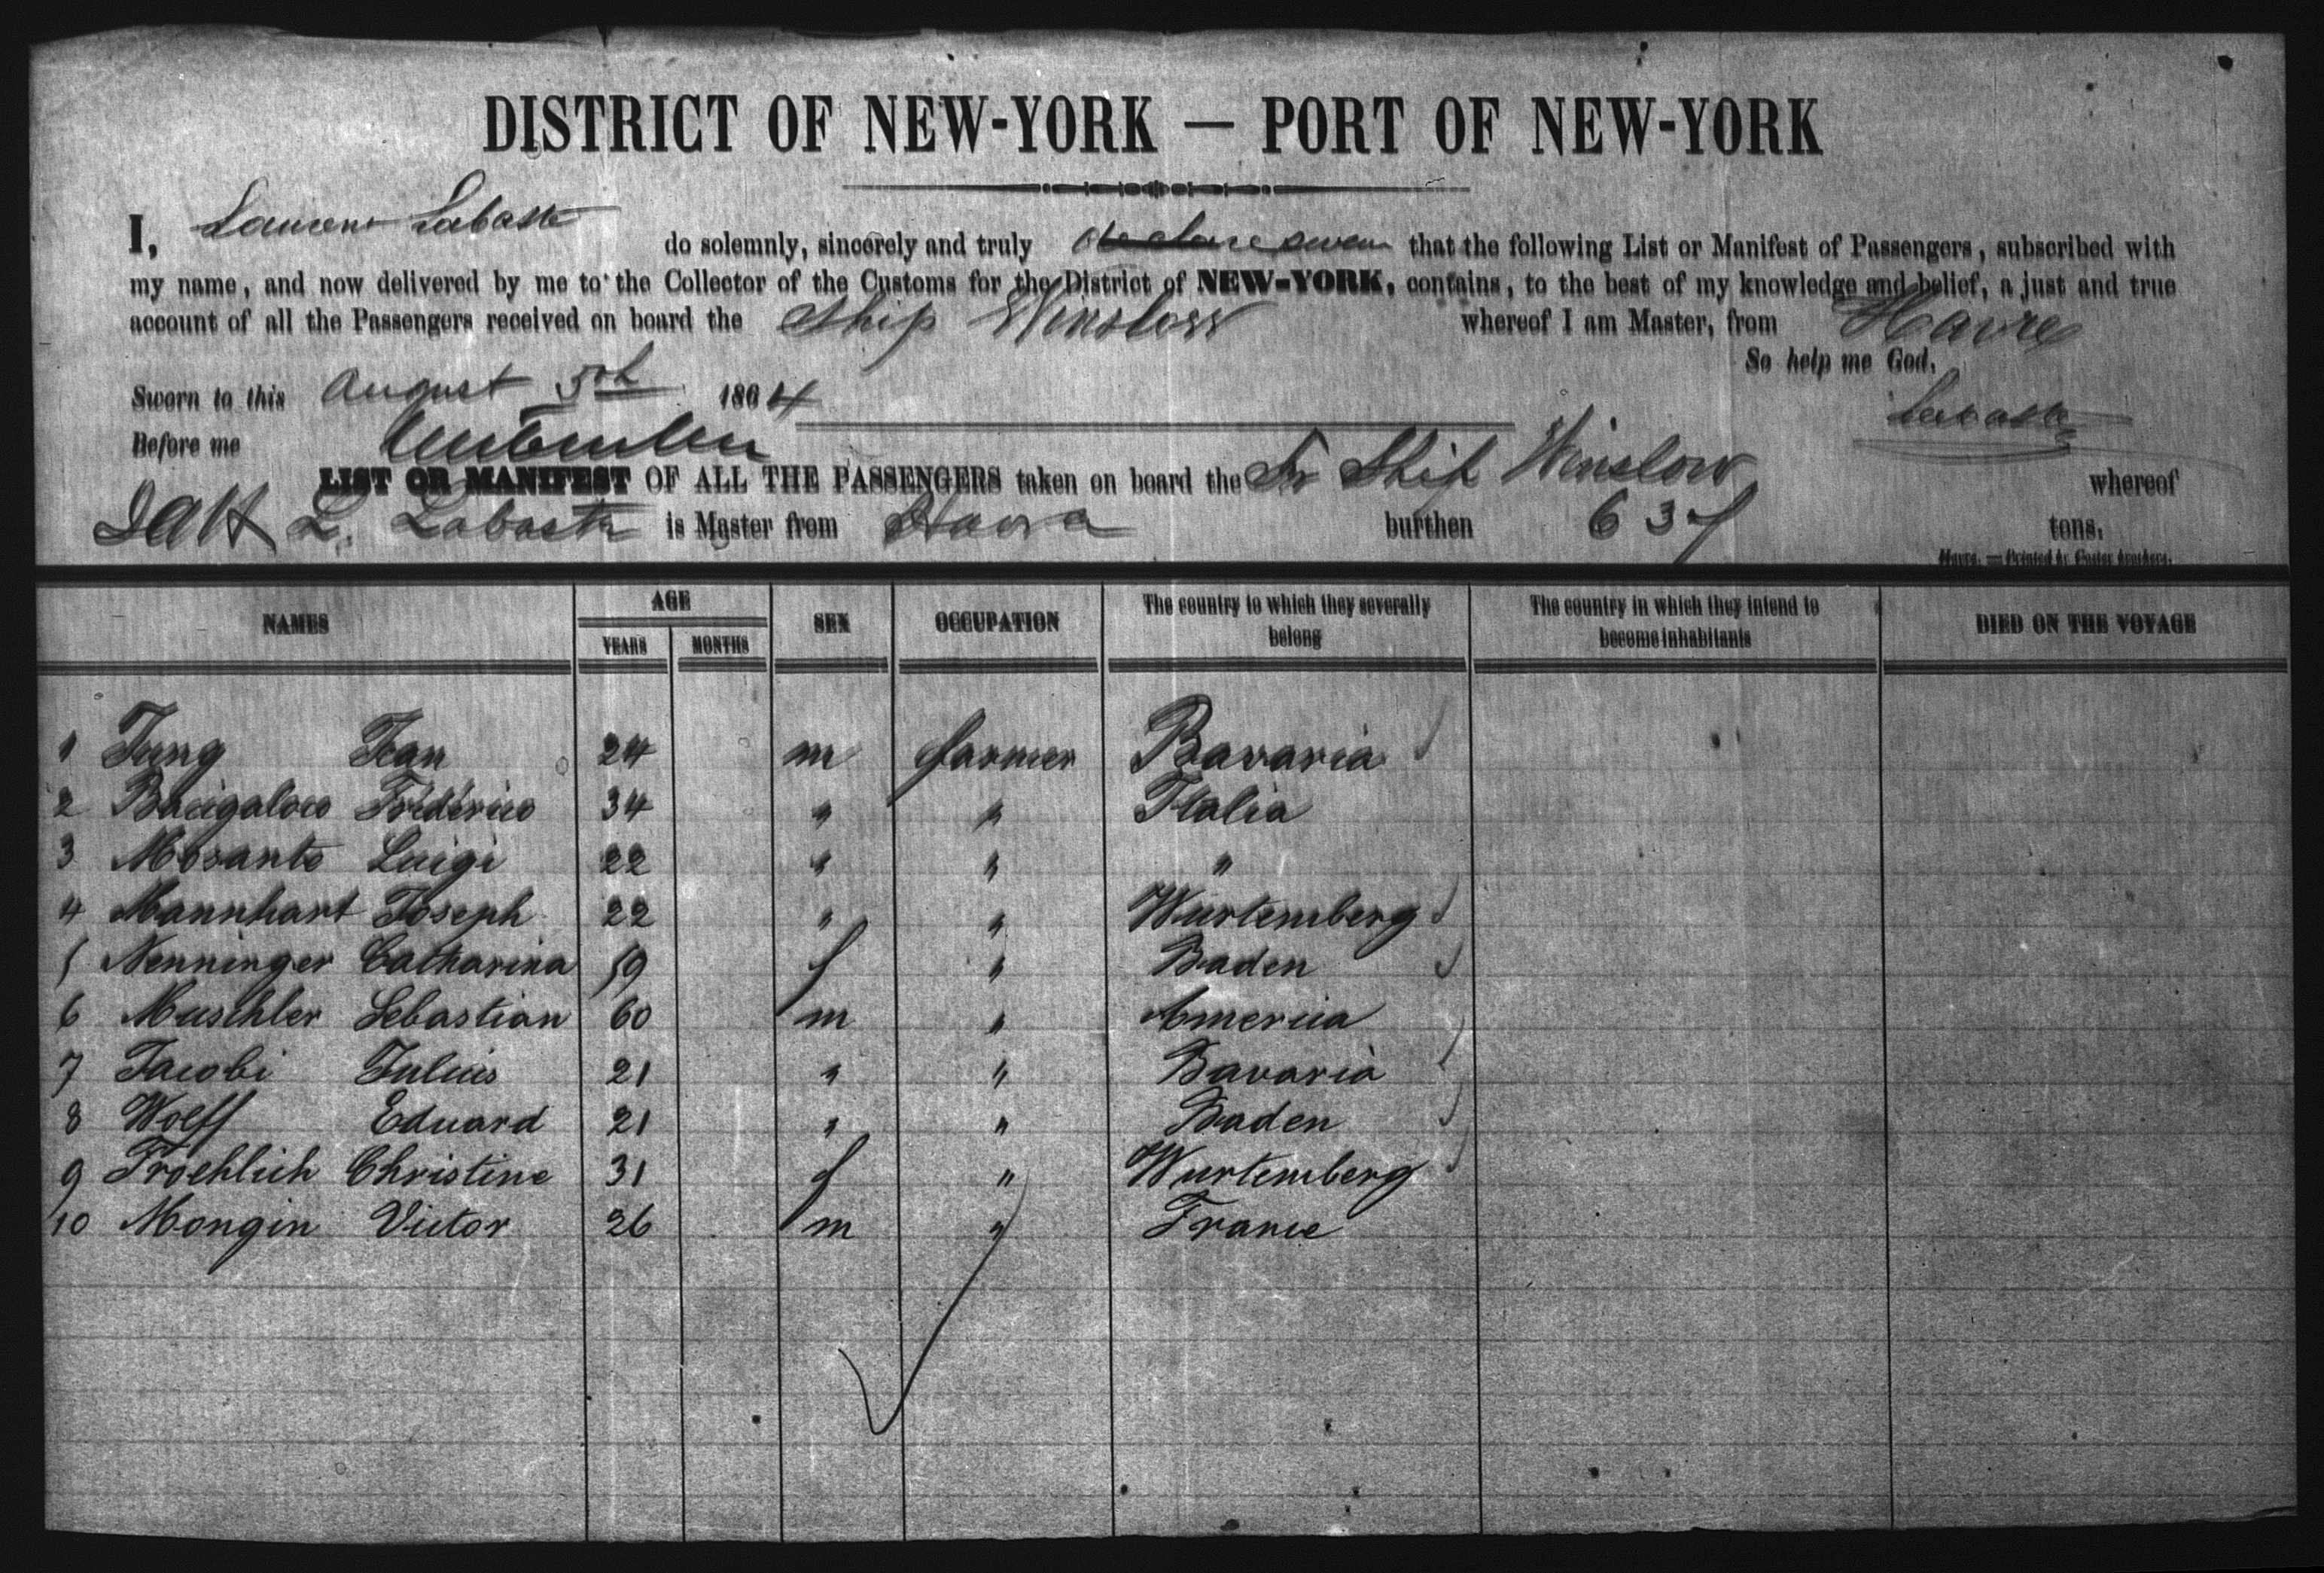 DISTRICT OF NEW-YORK — PORT OF NEW-YORK
I, Laurens Labaste do solemnly, sincerely and truly that the following List or Manifest of Passengers, subscribed with
my name, and now delivered by me to the Collector of the Customs for the District of NEW-YORK, contains, to the best of my knowledge and belief, a just and true
account of all the Passengers received on board the Ship Winslow whereof I am Master, from Havre
So help me God.
Sworn to this August 5th 1864 Labaste
Before me
LIST OR MANIFEST OF ALL THE PASSENGERS taken on board the Fr Ship Winslow whereof
L. Labaste is Master from Havra burthen 637 tons.
Havre. — Printed by Coster brothers.
NAMES AGE YEARS MONTHS SEX OCCUPATION The country to which they severally belong The country in which they intend to become inhabitants DIED ON THE VOYAGE
1 Jung Jean 24 m farmer Bavaria
2 Bacigaloco Frédérico 34 " " Italia
3 Mosanto Luigi 22 " " "
4 Mannhart Joseph 22 " " Wurtemberg
5 Nenninger Catharina 59 f " Baden
6 Muschler Sebastian 60 m " America
7 Jacobi Julius 21 " " Bavaria
8 Wolff Eduard 21 " " Baden
9 Froehlich Christine 31 f " Wurtemberg
10 Mongin Victor 26 m " France